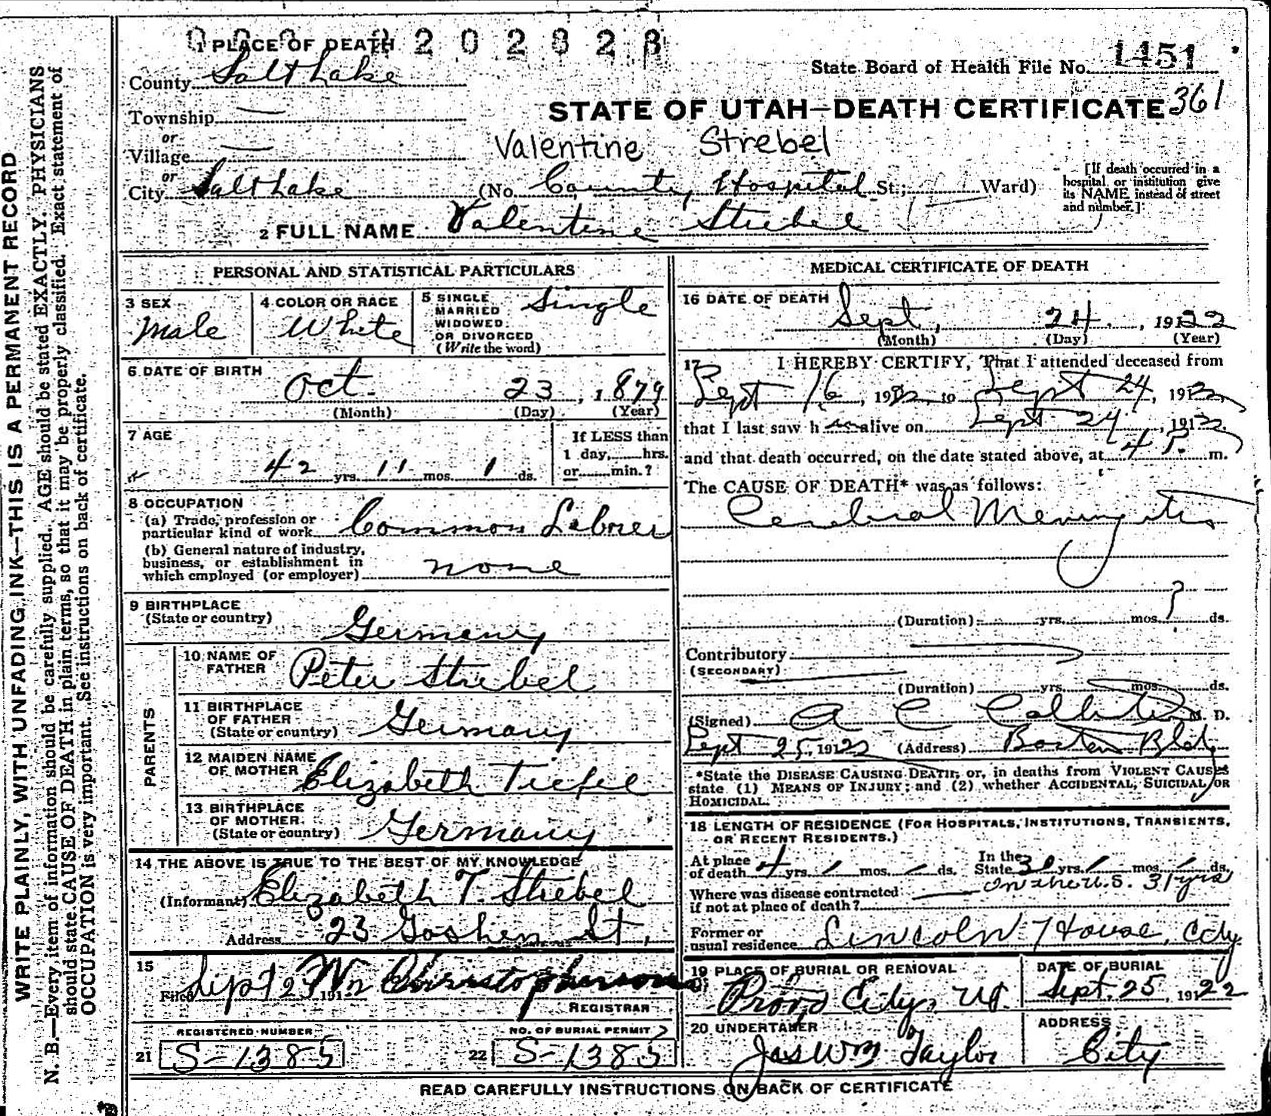 WRITE PLAINLY, WITH UNFADING INK—THIS IS A PERMANENT RECORD
N. B.—Every item of information should be carefully supplied. AGE should be stated EXACTLY. PHYSICIANS
should state CAUSE OF DEATH in plain terms, so that it may be properly classified. Exact statement of
OCCUPATION is very important. See instructions on back of certificate.
1 PLACE OF DEATH
County Salt Lake
State Board of Health File No. 1451
Township
STATE OF UTAH—DEATH CERTIFICATE 361
or
Village
Valentine Strebel
or
City Salt Lake (No. County Hospital St.; Ward)
[If death occurred in a
hospital or institution give
its NAME instead of street
and number.]
2 FULL NAME Valentine Striebel
PERSONAL AND STATISTICAL PARTICULARS
3 SEX
Male
4 COLOR OR RACE
White
5 SINGLE
MARRIED
WIDOWED
OR DIVORCED
(Write the word)
Single
6 DATE OF BIRTH
Oct. 23, 1879
(Month) (Day) (Year)
7 AGE
42 yrs. 11 mos. 1 ds.
If LESS than
1 day, hrs.
or min.?
8 OCCUPATION
(a) Trade, profession or
particular kind of work Common Laborer
(b) General nature of industry,
business, or establishment in
which employed (or employer) none
9 BIRTHPLACE
(State or country) Germany
PARENTS
10 NAME OF
FATHER Peter Striebel
11 BIRTHPLACE
OF FATHER
(State or country) Germany
12 MAIDEN NAME
OF MOTHER Elizabeth Tiefel
13 BIRTHPLACE
OF MOTHER
(State or country) Germany
14 THE ABOVE IS TRUE TO THE BEST OF MY KNOWLEDGE
(Informant) Elizabeth T. Striebel
Address 23 Goshen St.
15
Filed Sept 25 191 Wm Christophersons
REGISTRAR
REGISTERED NUMBER
21 S-1385
NO. OF BURIAL PERMIT
22 S-1385
MEDICAL CERTIFICATE OF DEATH
16 DATE OF DEATH
Sept, 24, 1922
(Month) (Day) (Year)
17 I HEREBY CERTIFY, That I attended deceased from
Sept 16, 1922 to Sept 24, 1922
that I last saw h alive on Sept 24, 1922
and that death occurred, on the date stated above, at 4 P. m.
The CAUSE OF DEATH* was as follows:
Cerebral Meningitis
(Duration) yrs. mos. ? ds.
Contributory
(SECONDARY)
(Duration) yrs. mos. ds.
(Signed) A C Callister M. D.
Sept 25, 1922 (Address) Boston Bldg
*State the DISEASE CAUSING DEATH, or, in deaths from VIOLENT CAUSES
state (1) MEANS OF INJURY; and (2) whether ACCIDENTAL, SUICIDAL or
HOMICIDAL.
18 LENGTH OF RESIDENCE (FOR HOSPITALS, INSTITUTIONS, TRANSIENTS,
OR RECENT RESIDENTS.)
At place
of death 4 yrs. mos. ds.
In the
State 30 yrs. mos. ds.
Where was disease contracted
if not at place of death?
In the U.S. 31 yrs
Former or
usual residence Lincoln House, City
19 PLACE OF BURIAL OR REMOVAL
Provo City, Ut
DATE OF BURIAL
Sept. 25, 1922
20 UNDERTAKER
Jas Wm Taylor
ADDRESS
City
READ CAREFULLY INSTRUCTIONS ON BACK OF CERTIFICATE